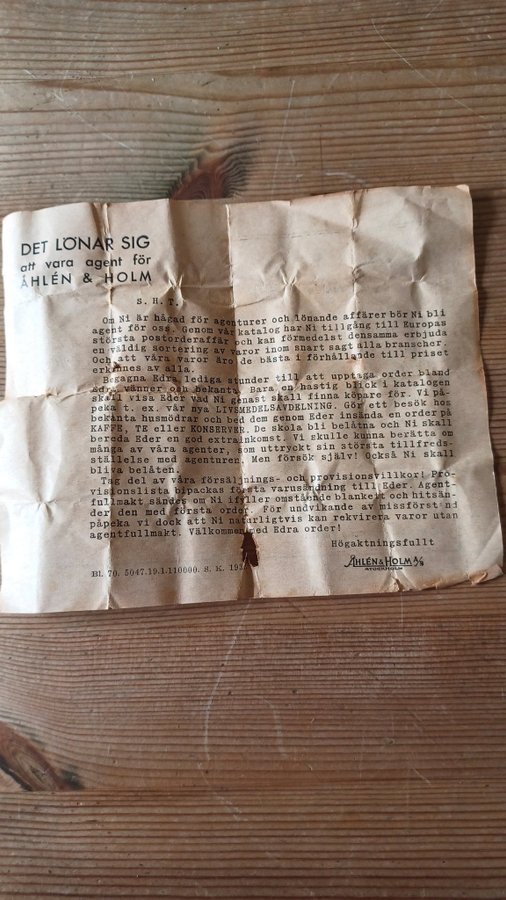 DET LÖNAR SIG
att vara agent för
ÅHLÉN & HOLM
S. H. T.
Om Ni är hågad för agenturer och lönande affärer bör Ni bli
agent för oss. Genom vår katalog har Ni tillgång till Europas
största postorderaffär och kan förmedelst densamma erbjuda
en väldig sortering av varor inom snart sagt alla branscher.
Och att våra varor äro de bästa i förhållande till priset
erkännes av alla.
Begagna Edra lediga stunder till att upptaga order bland
Edra vänner och bekanta. Bara en hastig blick i katalogen
skall visa Eder vad Ni genast skall finna köpare för. Vi på-
peka t. ex. vår nya LIVSMEDELSAVDELNING. Gör ett besök hos
bekanta husmödrar och bed dem genom Eder insända en order på
KAFFE, TE eller KONSERVER. De skola bli belåtna och Ni skall
bereda Eder en god extrainkomst. Vi skulle kunna berätta om
många av våra agenter, som uttryckt sin största tillfreds-
ställelse med agenturen. Men försök själv! Också Ni skall
bliva belåten.
Tag del av våra försäljnings- och provisionsvillkor! Pro-
visionslista bipackas första varusändning till Eder. Agent-
fullmakt sändes om Ni ifyller omstående blankett och hitsän-
der den med första order. För undvikande av missförstånd
påpeka vi dock att Ni naturligtvis kan rekvirera varor utan
agentfullmakt. Välkommen med Edra order!
Högaktningsfullt
ÅHLÉN & HOLM A/B
STOCKHOLM
Bl. 70. 5047.19.1.110000. S. K.